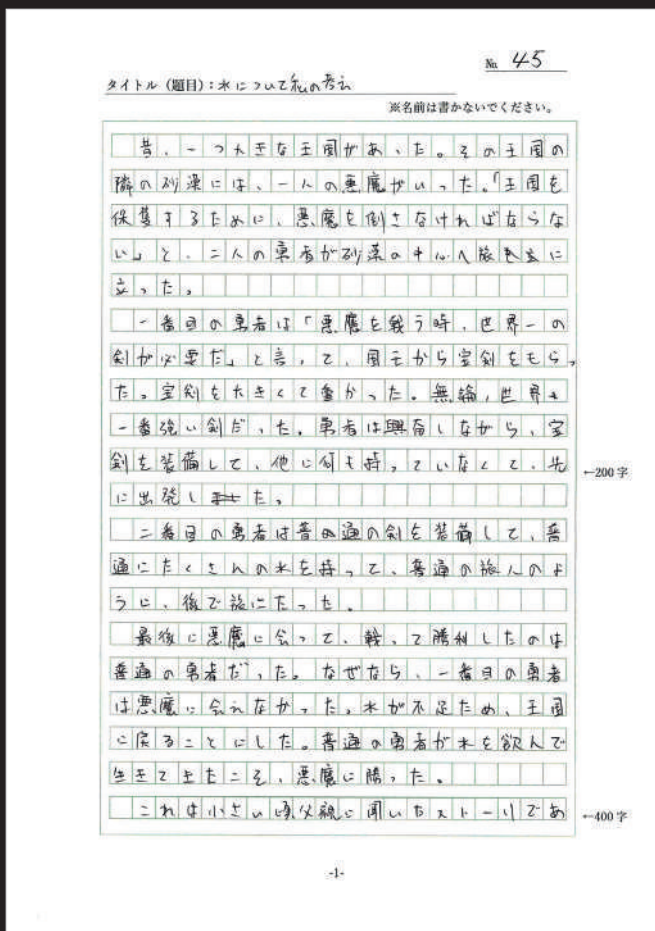 № 45
タイトル（題目）：水について私の考え
※名前は書かないでください。
昔、一つ大きな王国があった。その王国の
隣の砂漠には、一人の悪魔がいった。「王国を
保護するために、悪魔を倒さなければならな
い」と、二人の勇者が砂漠の中心へ旅を立に
立った。
一番目の勇者は「悪魔を戦う時、世界一の
剣が必要だ」と言って、国王から宝剣をもらっ
た。宝剣を大きくて重かった。無論、世界も
一番強い剣だった。勇者は興奮しながら、宝
剣を装備して、他に何も持っていなくて、先
に出発した。
←200字
二番目の勇者は普通の剣を装備して、普
通にたくさんの水を持って、普通の旅人のよ
うに、後で旅にたった。
最後に悪魔に会って、戦って勝利したのは
普通の勇者だった。なぜなら、一番目の勇者
は悪魔に会えなかった。水が不足ため、王国
に戻ることにした。普通の勇者が水を飲んで
生きてきたこそ、悪魔に勝った。
これは小さい頃父親に聞いたストーリであ
←400字
-1-